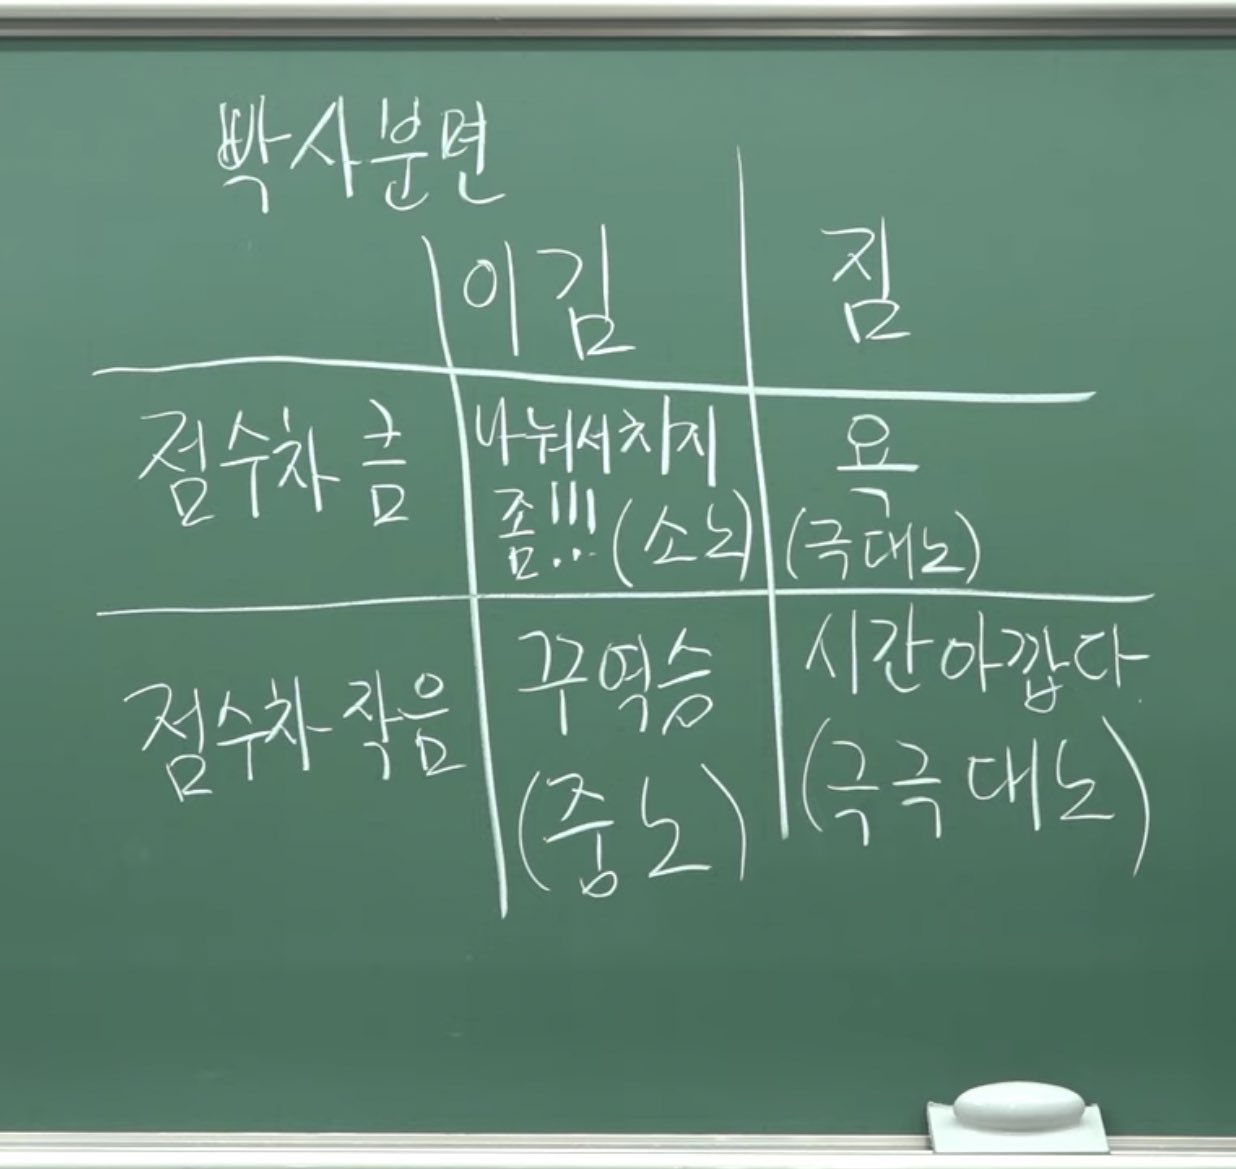 박사분면
이김 짐
점수차 큼 나눠서차지 욕
좀!!! (소노) (극대노)
점수차 작음 꾸역승 시간아깝다.
(중노) (극극대노)